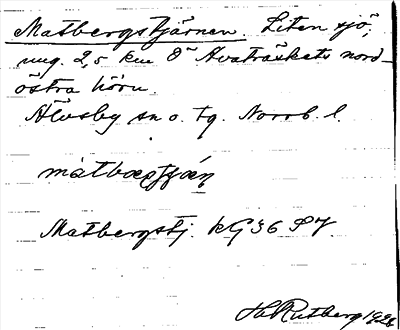 Matbergstjärnen. Liten sjö,
ung. 2,5 km Ö Avaträskets nord-
östra hörn.
Älvsby sn o. tg. Norrb. l.
Matbergstj. kG 36 SV.
H. Rutberg 1926